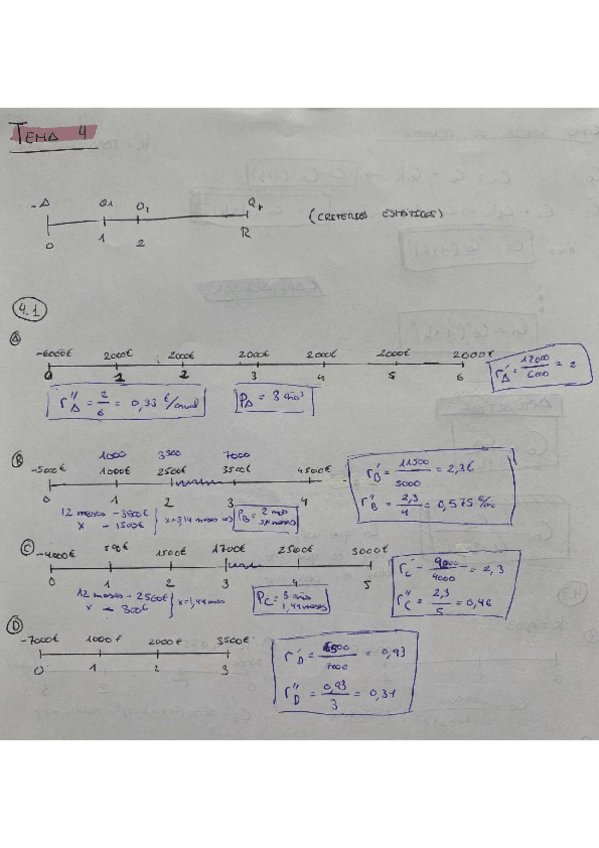 TEMA 4
-A Q1 Q2 Qr
0 1 2 R
(CRITERIOS ESTÁTICOS)
4.1
A
-6000€ 2000€ 2000€ 2000€ 2000€ 2000€ 2000€
0 1 2 3 4 5 6
r'A = 12000/6000 = 2
r''A = 2/6 = 0,33 €/anual
PA = 3 años
B
1000 3500 7000
-5000€ 1000€ 2500€ 3500€ 4500€
0 1 2 3 4
r'B = 11500/5000 = 2,3€
r''B = 2,3/4 = 0,575
12 meses - 3500€
x - 1500€
x = 5,14 meses ⇒
PB = 2 años 5,14 meses
C
-4000€ 500€ 1500€ 1700€ 2500€ 3000€
0 1 2 3 4 5
r'C = 9000/4000 = 2,3
r''C = 2,3/5 = 0,46
12 meses - 2500€
x - 300€
x = 1,44 meses
PC = 3 años 1,44 meses
D
-7000€ 1000€ 2000€ 3500€
0 1 2 3
r'D = 6500/7000 = 0,93
r''D = 0,93/3 = 0,31